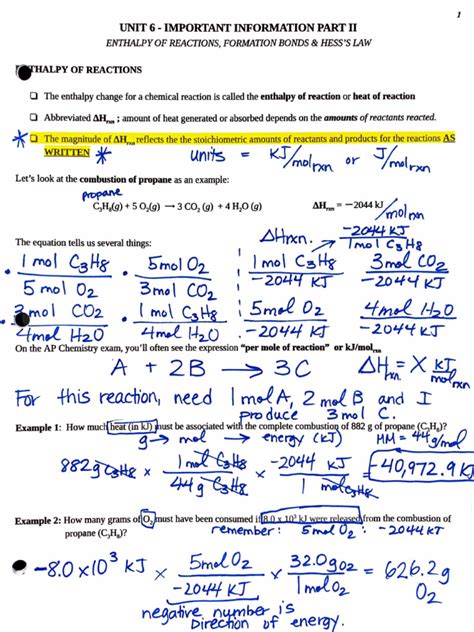 1
UNIT 6 - IMPORTANT INFORMATION PART II
ENTHALPY OF REACTIONS, FORMATION BONDS & HESS'S LAW
THALPY OF REACTIONS
❑ The enthalpy change for a chemical reaction is called the enthalpy of reaction or heat of reaction
❑ Abbreviated ΔHrxn ; amount of heat generated or absorbed depends on the amounts of reactants reacted.
* ❑ The magnitude of ΔHrxn reflects the the stoichiometric amounts of reactants and products for the reactions AS
WRITTEN * units = KJ/molrxn or J/molrxn
Let's look at the combustion of propane as an example:
propane
C3H8(g) + 5 O2(g) → 3 CO2 (g) + 4 H2O (g) ΔHrxn = −2044 kJ/molrxn
The equation tells us several things: ΔHrxn: -2044 KJ / 1mol C3H8
• 1 mol C3H8 / 5 mol O2 • 5mol O2 / 3mol CO2 • 1mol C3H8 / -2044 KJ 3mol CO2 / -2044 KJ
3mol CO2 / 4mol H2O • 3mol CO2 / 1mol C3H8 5mol O2 / -2044 KJ 4mol H2O / -2044 KJ
On the AP Chemistry exam, you'll often see the expression "per mole of reaction" or kJ/molrxn
A + 2B → 3C ΔHrxn = X KJ/molrxn
For this reaction, need 1molA, 2molB and I
produce 3mol C.
Example 1: How much heat (in kJ) must be associated with the complete combustion of 882 g of propane (C3H8)?
g → mol → energy (KJ) MM = 44g/mol
882g C3H8 x 1mol C3H8 / 44g C3H8 x -2044 KJ / 1 mol C3H8 = -40,972.9 KJ
Example 2: How many grams of O2 must have been consumed if 8.0 x 10³ kJ were released from the combustion of
propane (C3H8)? remember: 5mol O2 : -2044 KJ
-8.0x10³ KJ x 5mol O2 / -2044 KJ x 32.0g O2 / 1mol O2 = 626.2g O2
negative number is
Direction of energy.